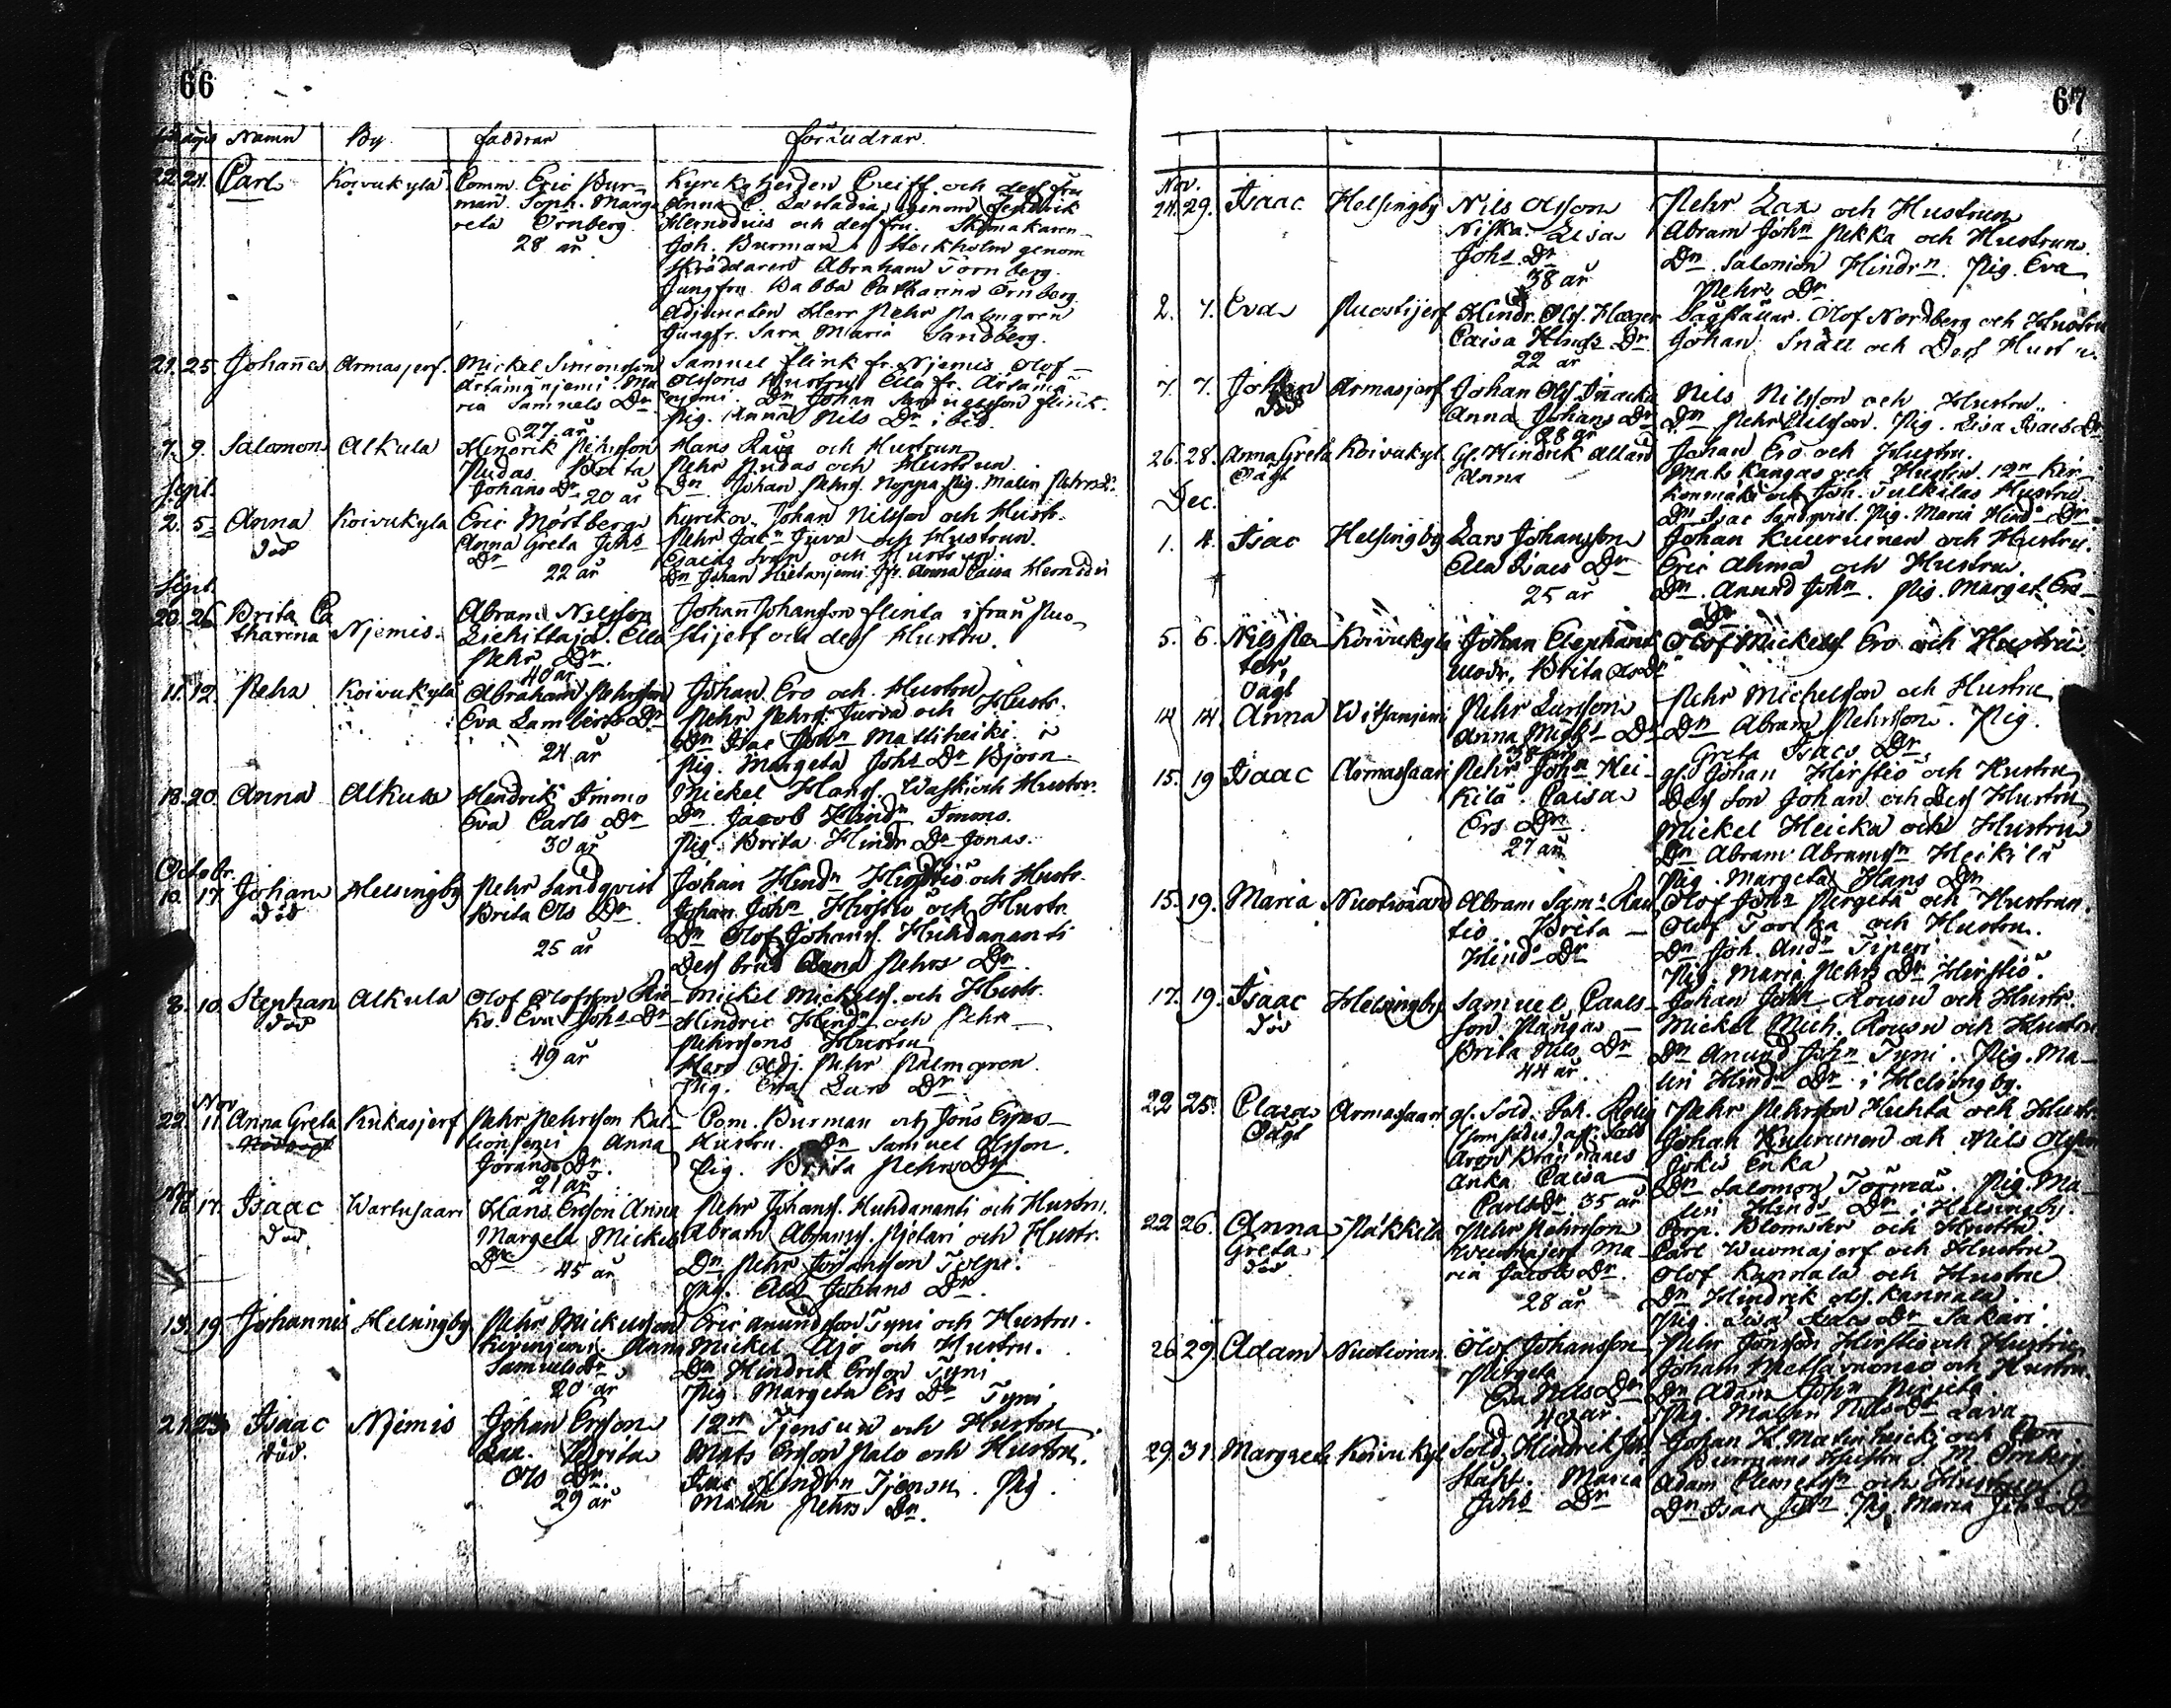 66
Namn By faddrar föräldrar
22. 24. Carl Koivukylä Comm. Eric Bur-
man. Soph. Marga
reta Ornberg
28 år
Kyrckoherden Creiff och dess fru
Anna C. genom
och dess fru.
Joh. Burman i Stockholm genom
Skräddaren Abraham Törnberg
Jungfru Catharina Örnberg
Adjuncten Herr Pehr Palmgren
Jungfr. Sara Maria Sandberg.
21. 25. Johannes Armasjerf. Mickel Simonsson
Artamänjemi. Ma
ria Samuels Dr
27 år
Samuel flink fr. Njemis Olof
Olssons Hustru Ella fr. Artama
njemi. Dn Johan Samuelsson flink.
Pig. Anna Nils Dr
7. 9. Salomon Alkula Hindrik Pehrsson
Pudas. Brita
Johans Dr 20 år
Hans Rava och Hustrun
Pehr Pudas och Hustrun.
Dn Johan Pehrs. Noppa Pig. Malin Pehrs Dr
Sept.
2. 5. Anna Koivukyla Eric Mörtberg
död
Anna Greta Johs
Dr
22 år
Kyrckov. Johan Nilsson och Hustr.
Pehr Juva och Hustrun.
och Hustrun.
Dn Johan Hietanjemi Anna Caisa
Sept.
20. 26 Brita Ca
tharina Njemis. Abram Nilsson
Liehittaja. Ella
Pehr Dr.
40 år
Johan Johansson flinta ifrån Puo
stijerf och dess Hustru.
11. 12. Pehr Koivukylä Abraham Pehrsson
Eva Lamberts Dr
24 år
Johan Ero och Hustru
Pehr Pehrs. Jurva och Hustr.
Dn Isac Johan Mattiheiki
Pig. Margeta Johs Dr Björn
18. 20. Anna Alkula Hendrik Immo
Eva Carls Dr
30 år
Mickel Hans. och Hustru.
Dn. Jacob Hindn Immos.
Pig. Brita Hindr Dr Jonas.
Octobr.
10. 17. Johan Helsingby Pehr Sandqvist
död
Brita Ols Dr
25 år
Johan Hindn Hirstiö och Hustr.
Johan John Hirstiö och Hustr.
Dn Olof Johans. Huhdananti
Dess brud Anna Pehrs Dr.
8. 10. Stephan Alkula Olof Olofsson
död
Ko. Eva Johs Dr
49 år
Mickel Mickels. och Hustr.
Hindric Hindn och Pehr
Pehrssons Hustru
Herr Adj. Pehr Palmgren
Pig. Eva Lars Dr
Nov.
22. 11. Anna Greta Kukasjerf Pehr Pehrsson
Anna
Jörans Dr.
21 år
Com. Burman och Jöns Erses
Hustru. Dn Samuel Olsson.
Pig. Brita Pehrs Dr
16 17. Isaac Wartusaari Hans Ersson Anna
död
Margeta Mickels
Dr 45 år
Pehr Johans. Huhdananti och Hustru.
Abram Abrams. Pietari och Hustr.
Dn Pehr Johansson Tolpi.
Pig. Ella Johans Dr.
15. 19. Johannes Helsingby Pehr Mickelsson
Kivinjemi. Anna
Samuels Dr
20 år
Eric Anundsson Tyni och Hustru.
Mickel Ajo och Hustru.
Dn Hindrik Ersson Tyni
Pig. Margeta Ers Dr Tyni
21. 23 Isaac Njemis Johan Ersson
död.
Lax. Brita
Ols Dr.
29 år
12mn Tjensuu och Hustru
Mats Ersson Palo och Hustru.
Isac Hindrn Tjensu. Pig.
Malin Pehrs Dr.
67
Nov.
24. 29. Isaac Helsingby Nils Olsson
Niska. Lisa
Johs Dr
38 år
Pehr Lax och Hustrun
Abram John Pekka och Hustrun.
Dn. Salomon Hindrn. Pig. Eva
Pehrs Dr
2. 7. Eva Puostijerf Hindr. Ols. Hager
Caisa Hinds Dr
22 år
Olof Nordberg och Hustru
Johan Snäll och Dess Hustru.
7. 7. Johan Armasjerf Johan Ols.
död
Anna Johans Dr
28 år
Nils Nilsson och Hustru.
Dn Pehr Nilsson. Pig. Lisa Isacs Dr
26. 28. Anna Greta Koivukyl Gl. Hindrik Allard
Oägt Anna
Johan Ero och Hustru.
Mats Kangas och Hustru. 12mn
och Joh. Tulkilas Hustru.
Dn Isac Sandqvist. Pig. Maria Hinds Dr
Dec.
1. 4. Isac Helsingby Lars Johansson
Ella Isacs Dr
25 år
Johan Kuuruinen och Hustru.
Eric Ahma och Hustru.
Dn. Anund John. Pig. Marget Ers
Dr
5. 6. Nils Pe-
ter, Koivukyla Johan Elephant
Oägt
modr. Brita Ols Dr
Olof Mickels Ero och Hustru.
14 14. Anna Witsanjemi Pehr Larsson
Anna Mich. Dr
Pehr Michelsson och Hustru
Dn Abram Pehrsson. Pig.
Greta Isacs Dr
15. 19 Isaac Armassaari Pehr John Hei-
kila. Caisa
Ers Dr.
27 år
gl. Johan Hirstiö och Hustru
Dess son Johan och Dess Hustru
Mickel Heicka och Hustru
Dn Abram Abramsn Heikilä
Pig. Margeta Hans Dr
15. 19. Maria Nuotioranda Abram Sam. Rau
tio Brita
Hinds Dr
Olof John Pergeta och Hustrun.
Olof Toolka och Hustru.
Dn Joh. Andn
Pig. Maria Pehrs Dr Hirstiö.
17. 19. Isaac Helsingby Samuel Carls-
död
son
Brita Nils Dr
44 år.
Johan John Rousu och Hustr.
Mickel Mich. Rousu och Hustru
Dn Anund John Tyni. Pig. Ma-
lin Hinds Dr i Helsingby.
22 25. Clara Armassaari gl. Sold. Joh.
Oägt
Caisa
Carls Dr 35 år
Pehr Pehrsson Huhta och Hustr.
Johan Kuurunen och Nils Olsson
Enka
Dn Salomon Törmä. Pig. Ma-
lin Hinds Dr i Helsingby.
22 26. Anna Päkkila Pehr Pehrsson
Greta
död
Wuomajerf Ma-
ria Jacobs Dr.
28 år
Corp. Blomster och Hustru
Carl Wuomajerf och Hustru
Olof Kannala och Hustru
Dn Hindrik Ols. Kannala.
Pig. Isacs Dr Sakari.
26 29. Adam Nuotioran. Olof Johansson
Pergeta
Eva Nils Dr
40 år.
Pehr Jönsson Hirstiö och Hustru
Johan och Hustru.
Dn Adam John Pergeta.
Pig. Malin Nils Dr Lava
29. 31. Margreta Koivukyl Sold. Hindrik Joh.
Ståhl. Maria
Johs Dr
Johan H. och Com.
Burmans Hustru S. M. Ornberg.
Adam Clemetsn och Hustru
Dn Isac John. Pig. Maria Johs Dr